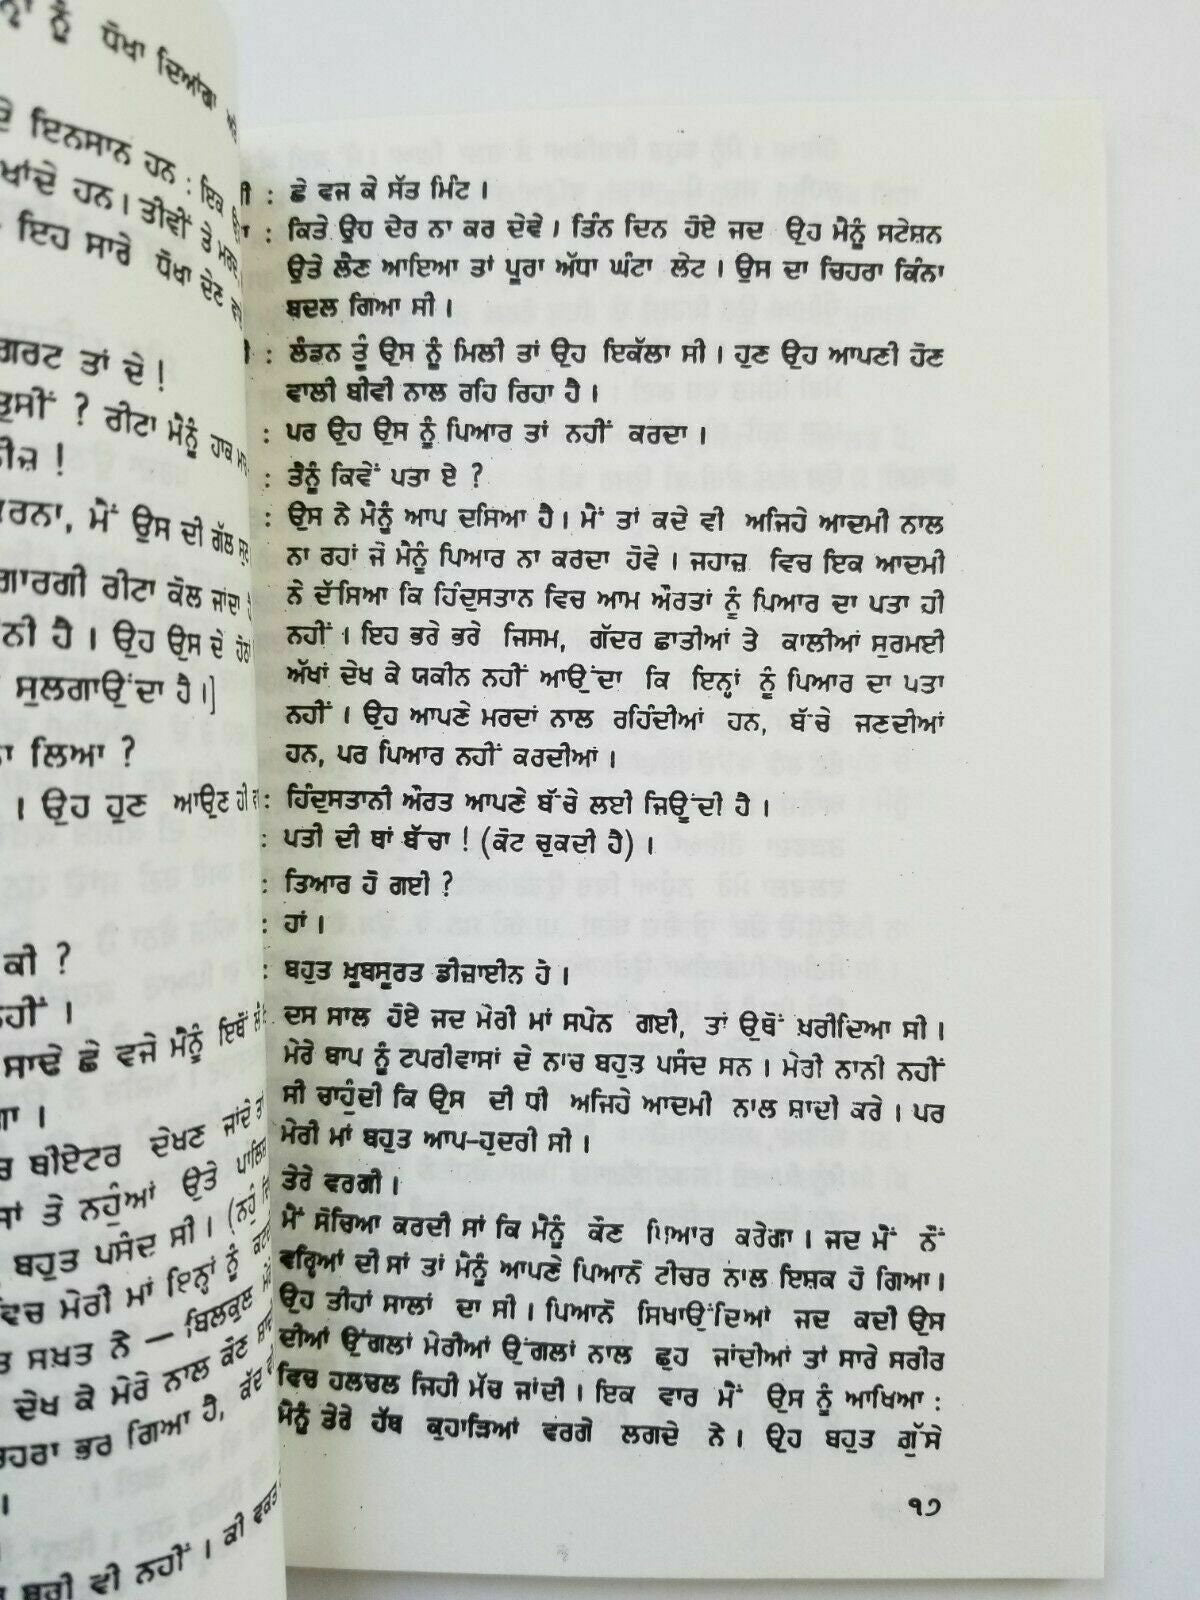 ਨੂੰ ਧੋਖਾ ਦਿਆਂਗਾ
ਇਨਸਾਨ ਹਨ : ਇਕ
ਹਨ । ਤੀਵੀਂ ਤੇ ਮਰਦ
ਇਹ ਸਾਰੇ ਧੋਖਾ ਦੇਣ
ਤਾਂ ਦੇ !
? ਰੀਟਾ ਮੈਨੂੰ ਹਾਕ
ਮੈਂ ਉਸ ਦੀ ਗੱਲ
ਗਾਰਗੀ ਰੀਟਾ ਕੋਲ ਜਾਂਦਾ
ਹੈ । ਉਹ ਉਸ ਦੇ
ਸੁਲਗਾਉਂਦਾ ਹੈ।]
ਲਿਆ ?
। ਉਹ ਹੁਣ ਆਉਣ ਹੀ
ਕੀ ?
ਸਾਢੇ ਛੇ ਵਜੇ ਮੈਨੂੰ ਇਥੋਂ
ਥੀਏਟਰ ਦੇਖਣ ਜਾਂਦੇ ਤਾਂ
ਤੇ ਨਹੁੰਆਂ ਉਤੇ
ਬਹੁਤ ਪਸੰਦ ਸੀ ।
ਮੇਰੀ ਮਾਂ ਇਨ੍ਹਾਂ ਨੂੰ
ਸਖ਼ਤ ਨੇ — ਬਿਲਕੁਲ
ਦੇਖ ਕੇ ਮੇਰੇ ਨਾਲ ਕੌਣ
ਭਰ ਗਿਆ ਹੈ,
ਬੁਰੀ ਵੀ ਨਹੀਂ । ਕੀ ਵਕਤ
: ਛੇ ਵਜ ਕੇ ਸੱਤ ਮਿੰਟ ।
: ਕਿਤੇ ਉਹ ਦੇਰ ਨਾ ਕਰ ਦੇਵੇ । ਤਿੰਨ ਦਿਨ ਹੋਏ ਜਦ ਉਹ ਮੈਨੂੰ ਸਟੇਸ਼ਨ
ਉਤੇ ਲੈਣ ਆਇਆ ਤਾਂ ਪੂਰਾ ਅੱਧਾ ਘੰਟਾ ਲੇਟ । ਉਸ ਦਾ ਚਿਹਰਾ ਕਿੰਨਾ
ਬਦਲ ਗਿਆ ਸੀ ।
: ਲੰਡਨ ਤੂੰ ਉਸ ਨੂੰ ਮਿਲੀ ਤਾਂ ਉਹ ਇਕੱਲਾ ਸੀ । ਹੁਣ ਉਹ ਆਪਣੀ ਹੋਣ
ਵਾਲੀ ਬੀਵੀ ਨਾਲ ਰਹਿ ਰਿਹਾ ਹੈ ।
: ਪਰ ਉਹ ਉਸ ਨੂੰ ਪਿਆਰ ਤਾਂ ਨਹੀਂ ਕਰਦਾ ।
: ਤੈਨੂੰ ਕਿਵੇਂ ਪਤਾ ਏ ?
: ਉਸ ਨੇ ਮੈਨੂੰ ਆਪ ਦਸਿਆ ਹੈ । ਮੈਂ ਤਾਂ ਕਦੇ ਵੀ ਅਜਿਹੇ ਆਦਮੀ ਨਾਲ
ਨਾ ਰਹਾਂ ਜੋ ਮੈਨੂੰ ਪਿਆਰ ਨਾ ਕਰਦਾ ਹੋਵੇ । ਜਹਾਜ਼ ਵਿਚ ਇਕ ਆਦਮੀ
ਨੇ ਦੱਸਿਆ ਕਿ ਹਿੰਦੁਸਤਾਨ ਵਿਚ ਆਮ ਔਰਤਾਂ ਨੂੰ ਪਿਆਰ ਦਾ ਪਤਾ ਹੀ
ਨਹੀਂ । ਇਹ ਭਰੇ ਭਰੇ ਜਿਸਮ, ਗੱਦਰ ਛਾਤੀਆਂ ਤੇ ਕਾਲੀਆਂ ਸੁਰਮਈ
ਅੱਖਾਂ ਦੇਖ ਕੇ ਯਕੀਨ ਨਹੀਂ ਆਉਂਦਾ ਕਿ ਇਨ੍ਹਾਂ ਨੂੰ ਪਿਆਰ ਦਾ ਪਤਾ
ਨਹੀਂ । ਉਹ ਆਪਣੇ ਮਰਦਾਂ ਨਾਲ ਰਹਿੰਦੀਆਂ ਹਨ, ਬੱਚੇ ਜਣਦੀਆਂ
ਹਨ, ਪਰ ਪਿਆਰ ਨਹੀਂ ਕਰਦੀਆਂ ।
: ਹਿੰਦੁਸਤਾਨੀ ਔਰਤ ਆਪਣੇ ਬੱਚੇ ਲਈ ਜਿਊਂਦੀ ਹੈ ।
: ਪਤੀ ਦੀ ਥਾਂ ਬੱਚਾ ! (ਕੋਟ ਚੁਕਦੀ ਹੈ) ।
: ਤਿਆਰ ਹੋ ਗਈ ?
: ਹਾਂ ।
: ਬਹੁਤ ਖ਼ੂਬਸੂਰਤ ਡੀਜ਼ਾਈਨ ਹੈ ।
ਦਸ ਸਾਲ ਹੋਏ ਜਦ ਮੇਰੀ ਮਾਂ ਸਪੇਨ ਗਈ, ਤਾਂ ਉਥੋਂ ਖ਼ਰੀਦਿਆ ਸੀ ।
ਮੇਰੇ ਬਾਪ ਨੂੰ ਟਪਰੀਵਾਸਾਂ ਦੇ ਨਾਚ ਬਹੁਤ ਪਸੰਦ ਸਨ । ਮੇਰੀ ਨਾਨੀ ਨਹੀਂ
ਸੀ ਚਾਹੁੰਦੀ ਕਿ ਉਸ ਦੀ ਧੀ ਅਜਿਹੇ ਆਦਮੀ ਨਾਲ ਸ਼ਾਦੀ ਕਰੇ । ਪਰ
ਮੇਰੀ ਮਾਂ ਬਹੁਤ ਆਪ-ਹੁਦਰੀ ਸੀ ।
ਤੇਰੇ ਵਰਗੀ ।
ਮੈਂ ਸੋਚਿਆ ਕਰਦੀ ਸਾਂ ਕਿ ਮੈਨੂੰ ਕੌਣ ਪਿਆਰ ਕਰੇਗਾ । ਜਦ ਮੈਂ ਨੌਂ
ਵਰ੍ਹਿਆਂ ਦੀ ਸਾਂ ਤਾਂ ਮੈਨੂੰ ਆਪਣੇ ਪਿਆਨੋ ਟੀਚਰ ਨਾਲ ਇਸ਼ਕ ਹੋ ਗਿਆ ।
ਉਹ ਤੀਹਾਂ ਸਾਲਾਂ ਦਾ ਸੀ । ਪਿਆਨੋ ਸਿਖਾਉਂਦਿਆਂ ਜਦ ਕਦੀ ਉਸ
ਦੀਆਂ ਉਂਗਲਾਂ ਮੇਰੀਆਂ ਉਂਗਲਾਂ ਨਾਲ ਛੁਹ ਜਾਂਦੀਆਂ ਤਾਂ ਸਾਰੇ ਸਰੀਰ
ਵਿਚ ਹਲਚਲ ਜਿਹੀ ਮੱਚ ਜਾਂਦੀ । ਇਕ ਵਾਰ ਮੈਂ ਉਸ ਨੂੰ ਆਖਿਆ :
ਮੈਨੂੰ ਤੇਰੇ ਹੱਥ ਕੁਹਾੜਿਆਂ ਵਰਗੇ ਲਗਦੇ ਨੇ । ਉਹ ਬਹੁਤ ਗੁੱਸੇ
੧੭